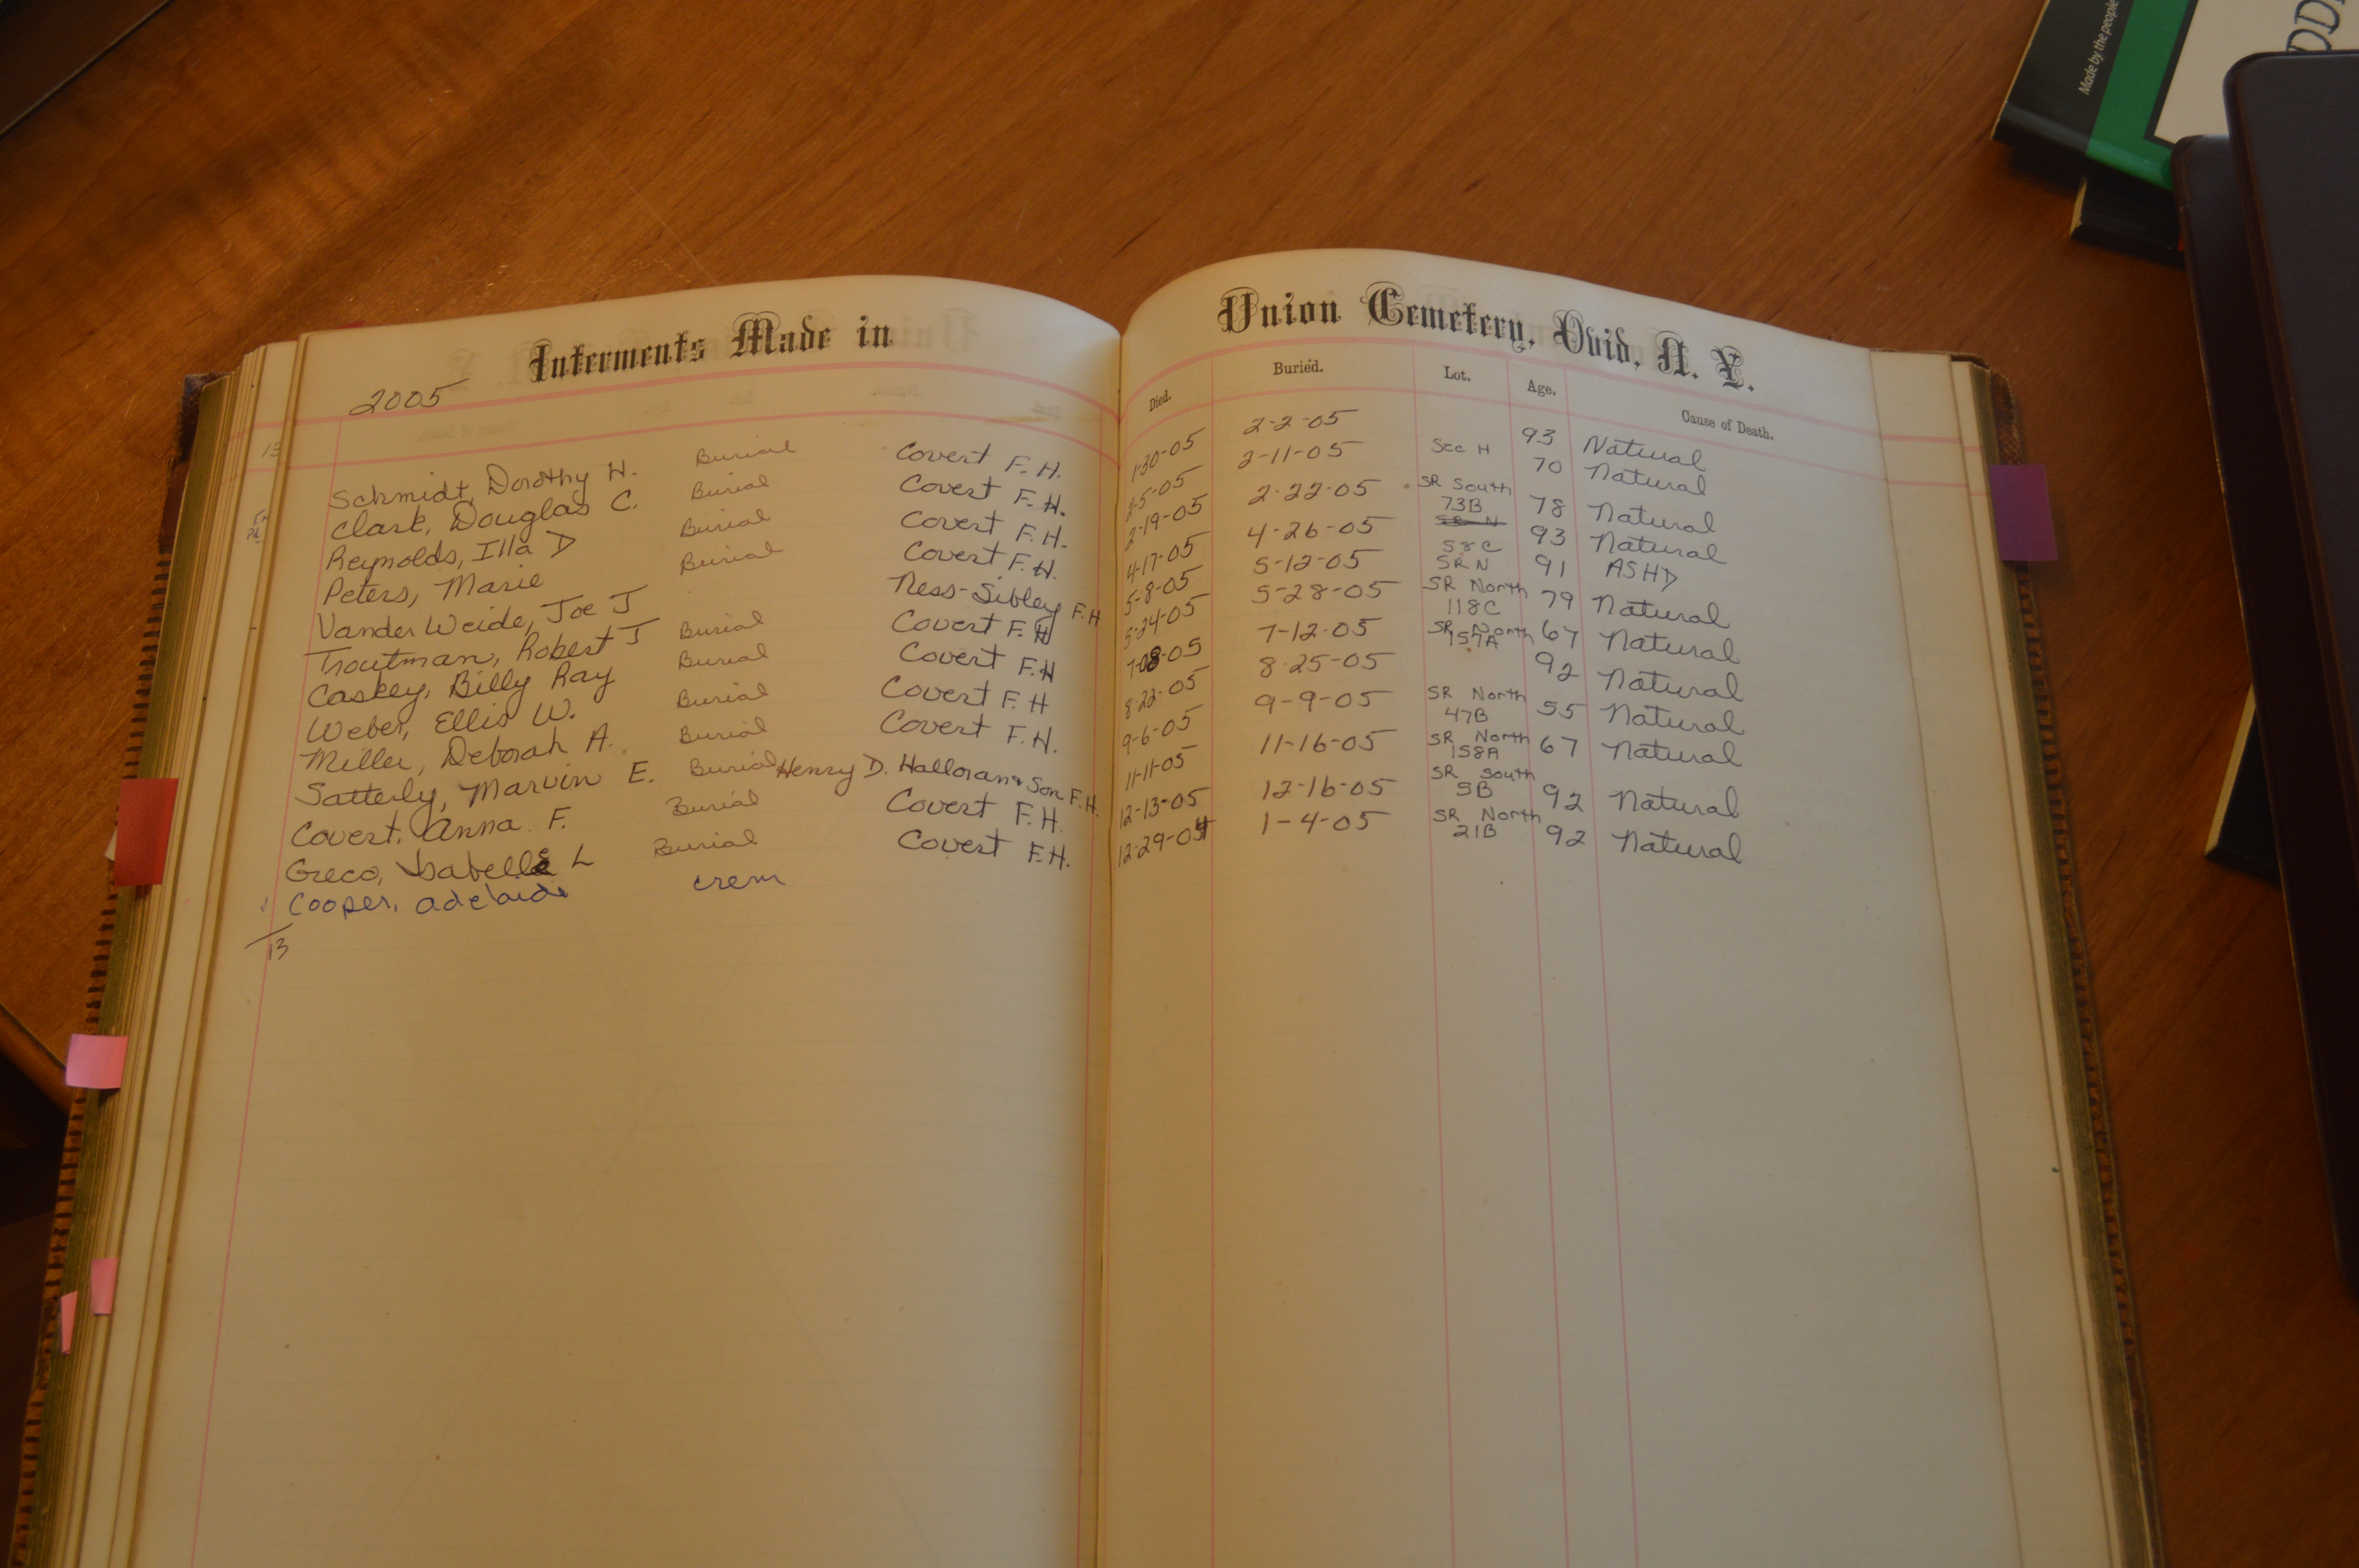 Made by the people
Interments Made in
Union Cemetery, Ovid, N. Y.
2005
Died.
Buried.
Lot.
Age.
Cause of Death.
13
Schmidt, Dorothy H. Burial Covert F.H. 1-30-05 2-2-05 93 Natural
Clark, Douglas C. Burial Covert F.H. 2-5-05 2-11-05 Sec H 70 Natural
Reynolds, Illa D Burial Covert F.H. 2-19-05 2-22-05 SR South 73B 78 Natural
Peters, Marie Burial Covert F.H. 4-17-05 4-26-05 SR N 93 Natural
Vander Weide, Joe J Ness-Sibley F.H 5-8-05 5-12-05 58C SRN 91 ASHD
Troutman, Robert J Burial Covert F.H 5-24-05 5-28-05 SR North 118C 79 Natural
Caskey, Billy Ray Burial Covert F.H 7-08-05 7-12-05 SR North 157A 67 Natural
Weber, Ellis W. Burial Covert F.H 8-22-05 8-25-05 92 Natural
Miller, Deborah A. Burial Covert F.H. 9-6-05 9-9-05 SR North 47B 55 Natural
Satterly, Marvin E. Burial Henry D. Halloran & Son F.H. 11-11-05 11-16-05 SR North 158A 67 Natural
Covert, Anna F. Burial Covert F.H. 12-13-05 12-16-05 SR South 5B 92 Natural
Greco, Isabelle L Burial Covert F.H. 12-29-04 1-4-05 SR North 21B 92 Natural
Cooper, Adelaide crem
13